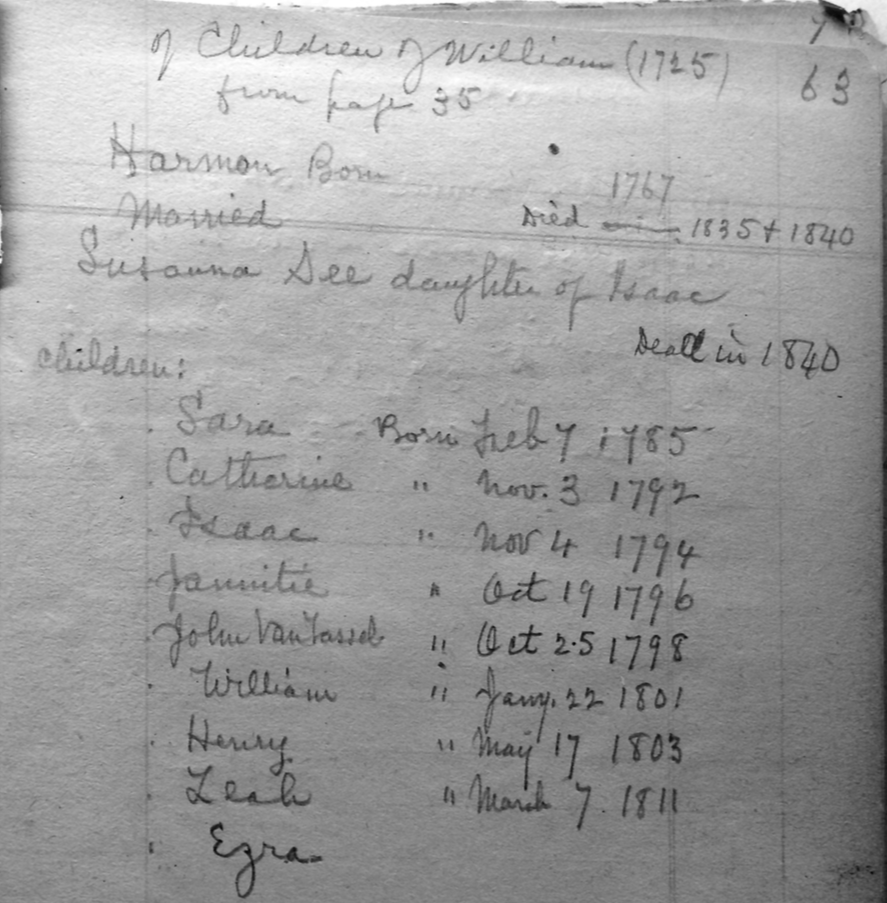 of Children of William (1725) 63
from page 35
Harmon Born 1767
Married Died 1835 + 1840
Susanna See daughter of Isaac
Dead in 1840
children:
Sara Born Feb 7 1785
Catherine " Nov. 3 1792
Isaac " Nov 4 1794
Jannitie " Oct 19 1796
John VanTassel " Oct 25 1798
William " Jany. 22 1801
Henry " May 17 1803
Leah " March 7 1811
Ezra